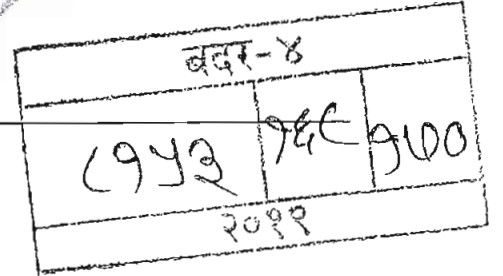 बदर-४
८१५३ १६८ १७०
२०११